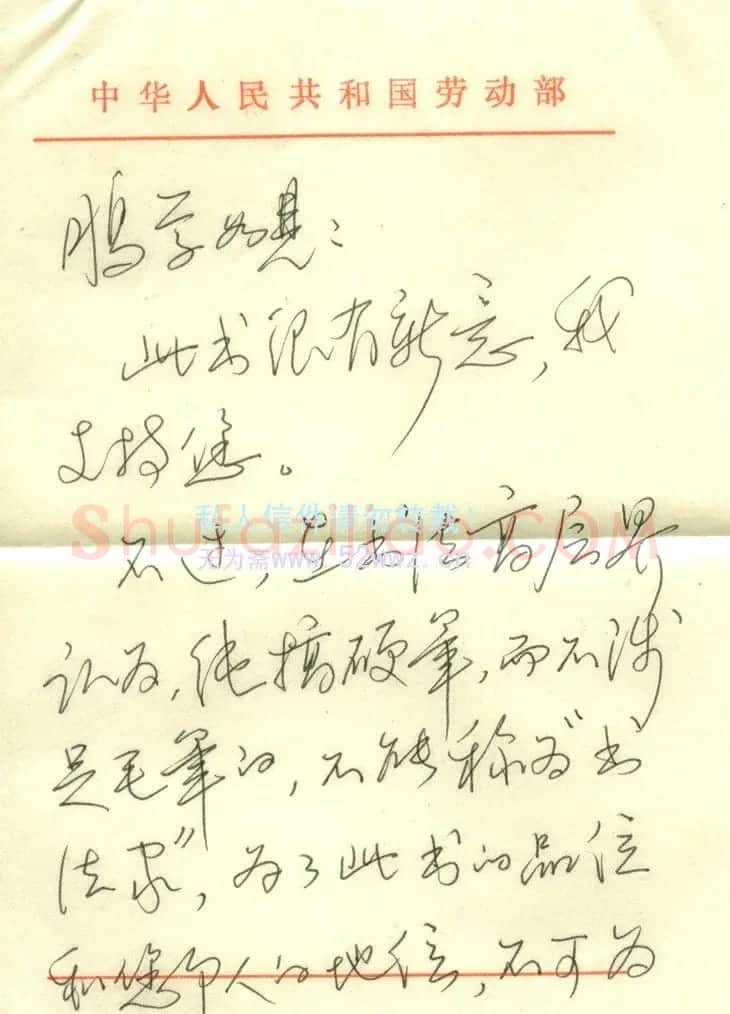 中华人民共和国劳动部
鹏学如晤：
此书很有新意，我
支持您。
私人信件请勿转载！
Shufaziliao.COM
天为斋www.52wwz.cn
不过，在书法高层界
认为，纯搞硬笔，而不涉
足毛笔的，不能称为“书
法家”，为了此书的品位
和您个人的地位，不可为